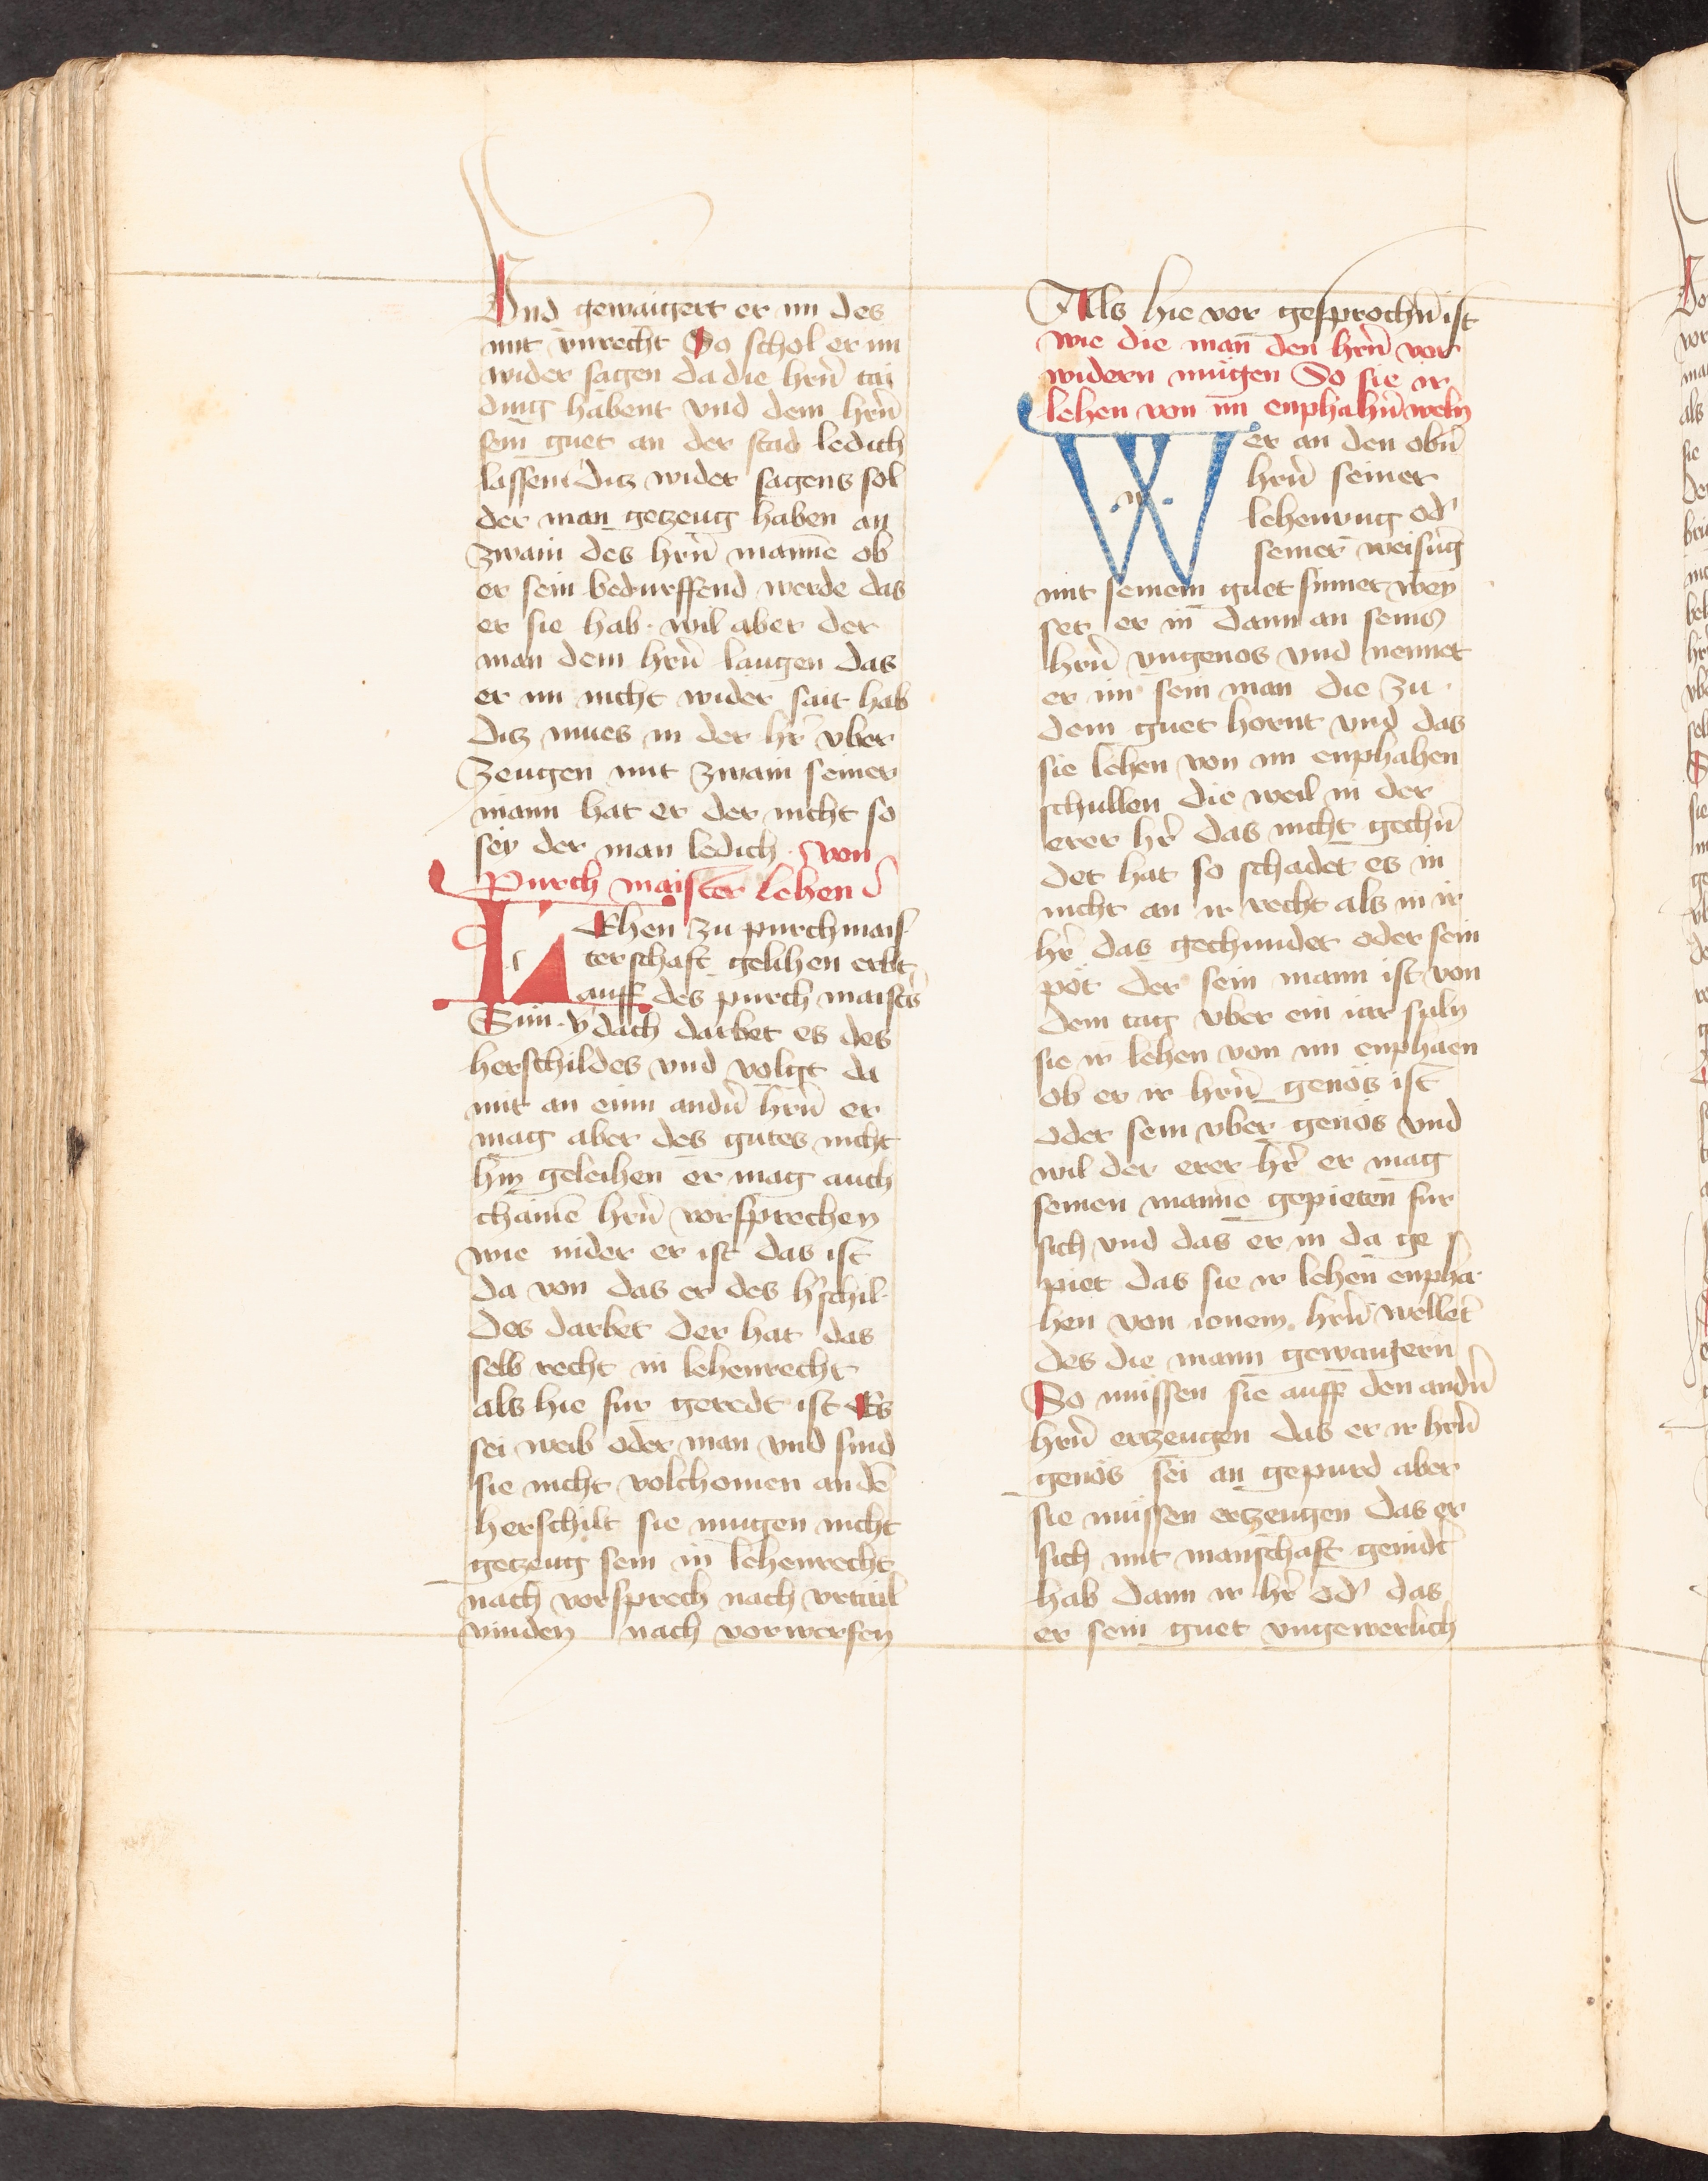 Vnd gewaigert er im des
mit vnrecht So schol er im
wider sagen da die hrn̄ tai
ding habent vnd dem hrn̄
sein guet an der stad ledich
lassen ditz wider sagens sol
der man getzeug haben an
zwain des hrn̄ manne ob
er sein bedurffend werde das
er sie hab · wil aber der
man dem hrn̄ laugen das
er im nicht wider sait hab
ditz mues in der hr̄ vber
zeugen mit zwain seiner
mann hat er der nicht so
sey der man ledich · von
purch maister lehen
LEhen zu purchmais
terschaft gelihen erbt
auff des purch maisters
Sun · ydach darbet es des
herschildes vnd volgt da
mit an einn andn̄ hrn̄ er
mag aber des gutes nicht
hin geleihen er mag auch
chainē hrn̄ vorsprechen
wie nider er ist das ist
da von das er des hˀschil
des darbet der hat das
selb recht in lehenrecht
als hie fur geredt ist Es
sei weib oder man vnd sind
sie nicht volchomen an dē
herschilt sie mugen nicht
getzeug sein in lehenrecht
nach vorsprech nach vrtail
vinden nach vorwerfen
Als hie vor gesprochn̄ ist
wie die man̄ den hrn̄ vor
widern mugen So sie ir
lehen von im enphahn̄ weln
Wer an den obn̄
hrn̄ seiner
lehenung odˀ
seiner weisung
mit seinem guet sinnet wey
set er in dann an seins
hrn̄ vngenos vnd nennet
er im sein man die zu
dem guet hornt vnd das
sie lehen von im enphahen
schullen die weil in der
erer hr̄ das nicht gechn̄
det hat so schadet es in
nicht an ir recht als in ir
hr̄ das gechundet oder sein
pot der sein mann ist von
dem tag vber ein iar suln
sie ir lehen von im enphaen
ob er ir hrn̄ genos ist
oder sein vber genos vnd
wil der erer hr̄ er mag
seinen manne gepieten fur
sich vnd das er in da ge
piet das sie ir lehen enpha
hen von ienem hrn̄ wellet
des die mann gewaigern
So mussen sie auff den andn̄
hrn̄ ertzeugen das er ir hrn̄
genos sei an gepurd aber
sie mussen ertzeugen das er
sich mit manschaft genidt
hab dann ir hr̄ odˀ das
er sein guet vngewerlich